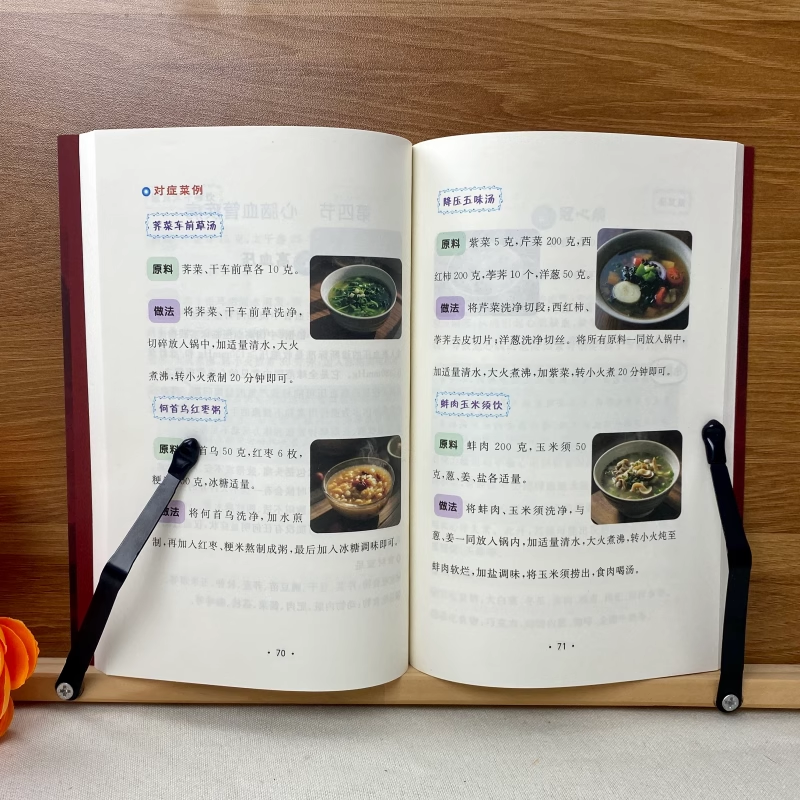 对症菜例
荠菜车前草汤
原料 荠菜、干车前草各 10 克。
做法 将荠菜、干车前草洗净，
切碎放入锅中，加适量清水，大火
煮沸，转小火煮制 20 分钟即可。
何首乌红枣粥
原料 首乌 50 克，红枣 6 枚，
粳 00 克，冰糖适量。
做法 将何首乌洗净，加水煎
制，再加入红枣、粳米熬制成粥，最后加入冰糖调味即可。
• 70 •
降压五味汤
原料 紫菜 5 克，芹菜 200 克，西
红柿 200 克，荸荠 10 个，洋葱 50 克。
做法 将芹菜洗净切段；西红柿、
荸荠去皮切片，洋葱洗净切丝。将所有原料一同放入锅中，
加适量清水，大火煮沸，加紫菜，转小火煮 20 分钟即可。
蚌肉玉米须饮
原料 蚌肉 200 克，玉米须 50
克，葱、姜、盐各适量。
做法 将蚌肉、玉米须洗净，与
葱、姜一同放入锅内，加适量清水，大火煮沸，转小火炖至
蚌肉软烂，加盐调味，将玉米须捞出，食肉喝汤。
• 71 •